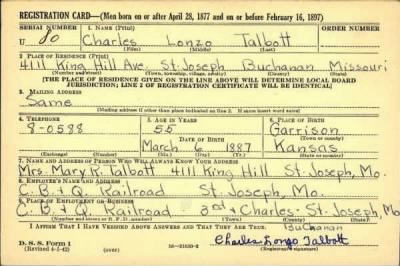 REGISTRATION CARD—(Men born on or after April 28, 1877 and on or before February 16, 1897)
SERIAL NUMBER 1. NAME (Print) ORDER NUMBER
U 80 Charles Lonzo Talbott
(First) (Middle) (Last)
2. PLACE OF RESIDENCE (Print)
4111 King Hill Ave. St. Joseph Buchanan Missouri
(Number and street) (Town, township, village, or city) (County) (State)
[THE PLACE OF RESIDENCE GIVEN ON THE LINE ABOVE WILL DETERMINE LOCAL BOARD
JURISDICTION; LINE 2 OF REGISTRATION CERTIFICATE WILL BE IDENTICAL]
3. MAILING ADDRESS
Same
[Mailing address if other than place indicated on line 2. If same insert word same]
4. TELEPHONE 5. AGE IN YEARS 6. PLACE OF BIRTH
8-0588 55 Garrison
DATE OF BIRTH (Town or county)
March 6 1887 Kansas
(Mo.) (Day) (Yr.) (State or country)
7. NAME AND ADDRESS OF PERSON WHO WILL ALWAYS KNOW YOUR ADDRESS
Mrs. Mary K. Talbott 4111 King Hill St. Joseph, Mo.
8. EMPLOYER'S NAME AND ADDRESS
C. B. & Q. Railroad St. Joseph, Mo.
9. PLACE OF EMPLOYMENT OR BUSINESS
C. B. & Q. Railroad 3rd & Charles St. Joseph, Mo
(Number and street or R. F. D. number) (Town) (County) (State)
Buchanan
I AFFIRM THAT I HAVE VERIFIED ABOVE ANSWERS AND THAT THEY ARE TRUE.
D. S. S. Form 1
(Revised 4-1-42) (over) Charles Lonzo Talbott